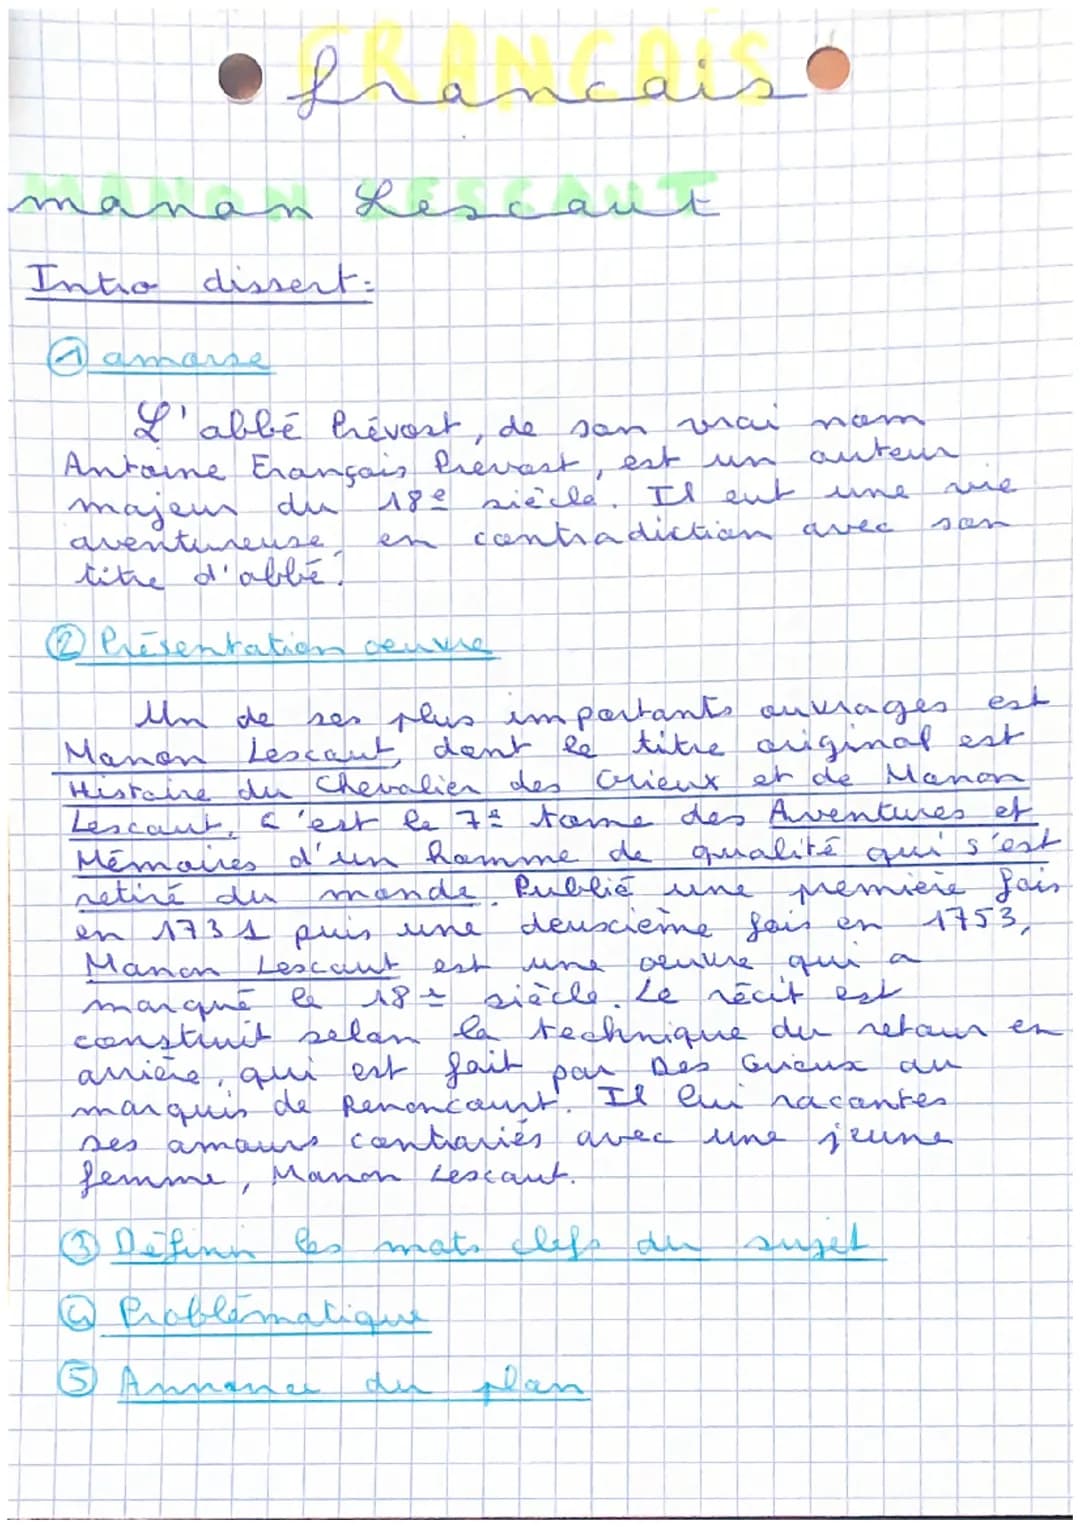 FRANCAIS
francais
MANON LESCAUT
manon Lescaut
Intro dissert:
① amorse
L'abbé Prévost, de son vrai nom
Antoine François Prevost, est un auteur
majeur du 18e siècle. Il eut une vie
aventureuse, en contradiction avec son
titre d'abbé.
② Présentation oeuvre
Un de ses plus importants ouvrages est
Manon Lescaut, dont le titre original est
Histoire du Chevalier des Grieux et de Manon
Lescaut. C'est le 7e tome des Aventures et
Mémoires d'un homme de qualité qui s'est
retiré du monde. Publié une première fois
en 1731 puis une deuxcième fois en 1753,
Manon Lescaut est une oeuvre qui a
marqué le 18e siècle. Le récit est
construit selon la technique du retour en
arrière, qui est fait par Des Grieux au
marquis de Renoncourt. Il lui racontes
ses amours contrariés avec une jeune
femme, Manon Lescaut.
③ Définir les mots clefs du sujet
④ Problématique
⑤ Annonce du plan